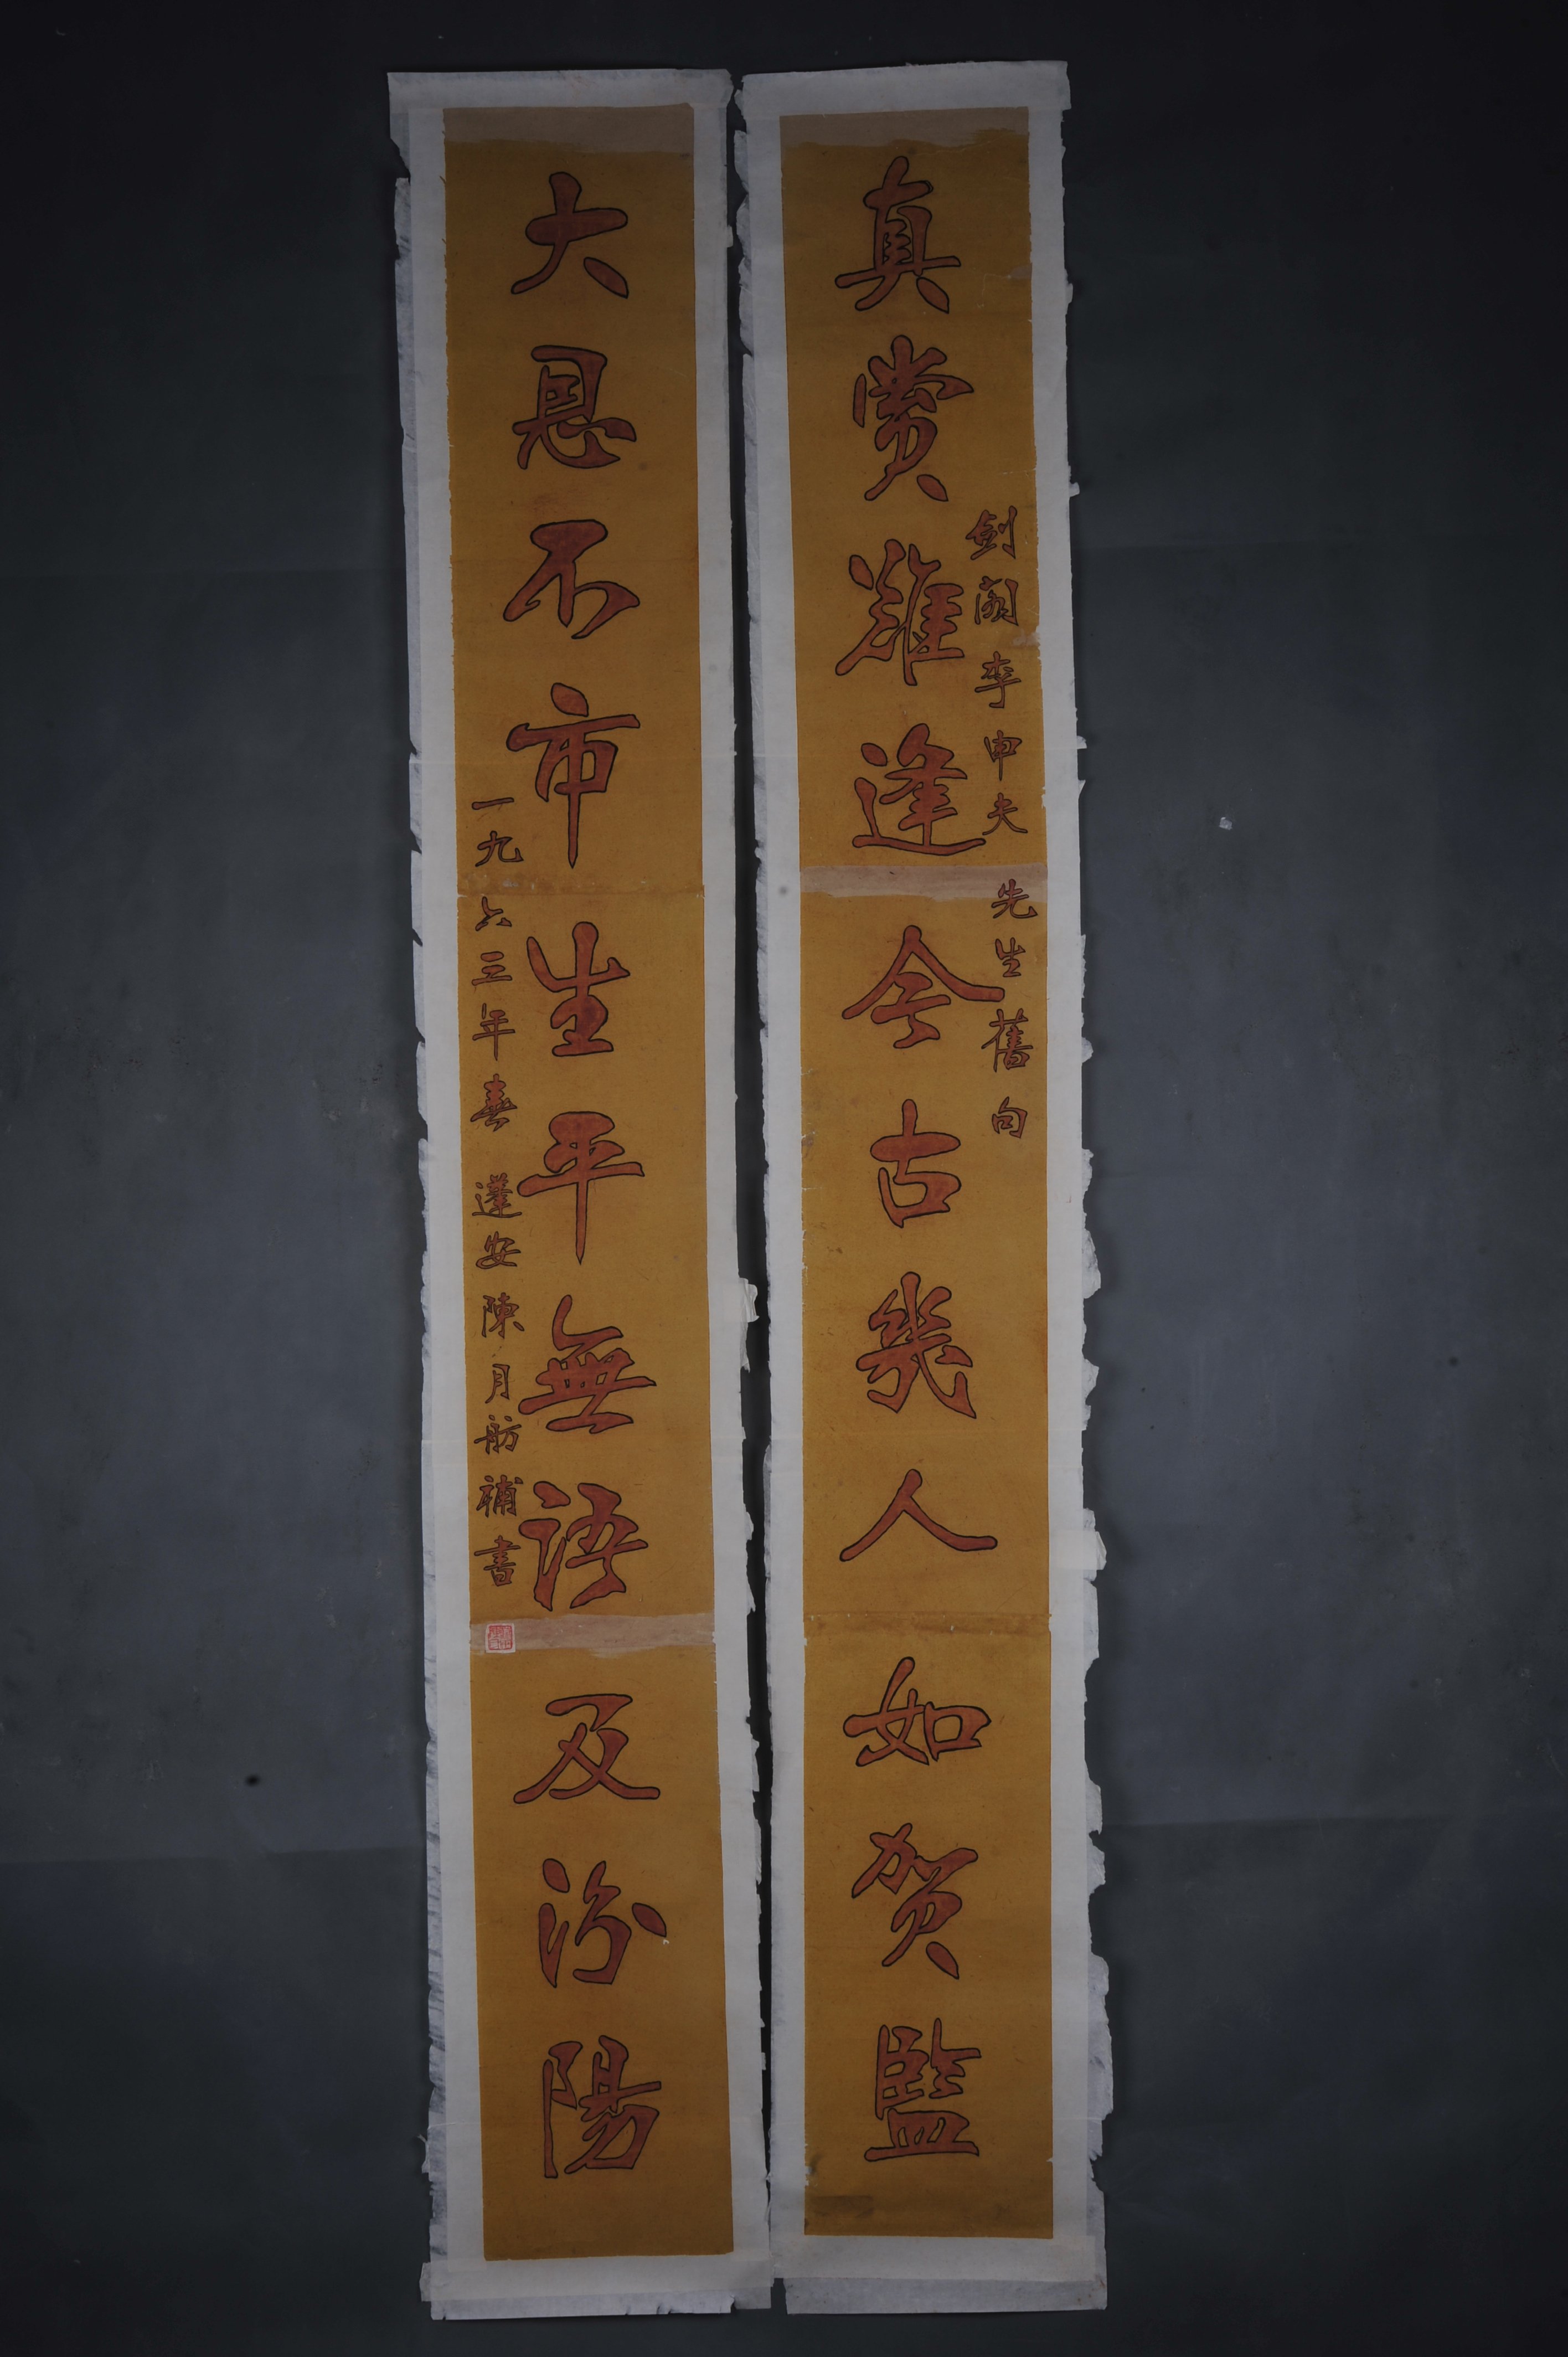 真賞難逢今古幾人如賀監
劍閣李申夫先生舊句
大恩不市生平無語及汾陽
一九六三年春蓬安陳月舫補書